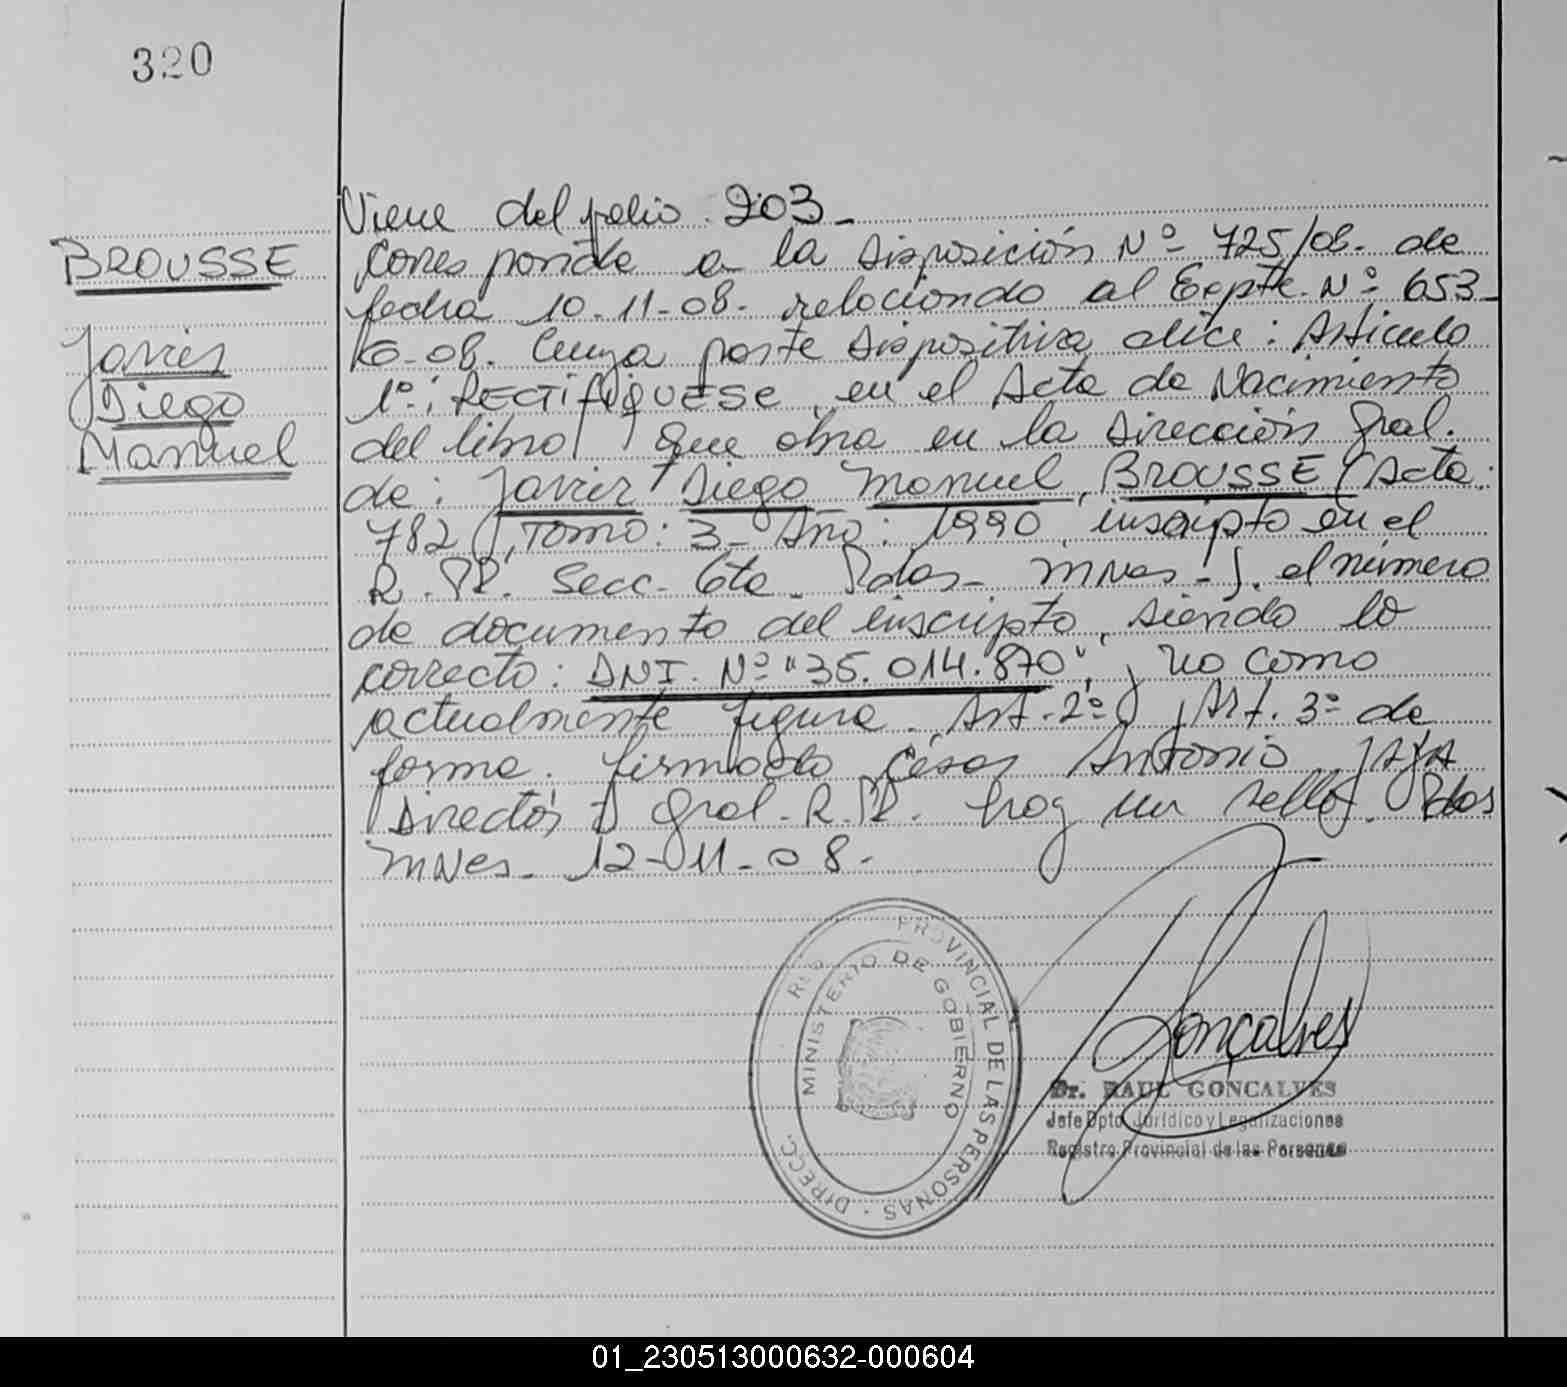 320
BROUSSE
Javier
Diego
Manuel
Viene del folio 203-
Corresponde a la Disposición Nº 725/08. de
fecha 10-11-08. relacionado al Expte. Nº 653-
G-08. Cuya parte Dispositiva dice: Articulo
1º: RECTIFIQUESE, en el Acta de Nacimiento
del libro que obra en la Dirección Gral.
de: Javier Diego Manuel BROUSSE (Acta:
782, Tomo: 3- Año: 1990 inscripto en el
R.PP. Secc. 6ta. Pdas- MNes-). el número
de documento del inscripto, siendo lo
correcto: DNI. Nº "35.014.870", y no como
actualmente figura. Art. 2º y Art. 3º de
forma. firmado César Antonio JAJA
Director Gral. R.PP. hay un sello. Pdas
MNes- 12-11-08-
DIRECC. PROVINCIAL DE LAS PERSONAS
MINISTERIO DE GOBIERNO
Gonçalves
Dr. RAUL GONCALVES
Jefe Dpto. Jurídico y Legalizaciones
Registro Provincial de las Personas
01_230513000632-000604